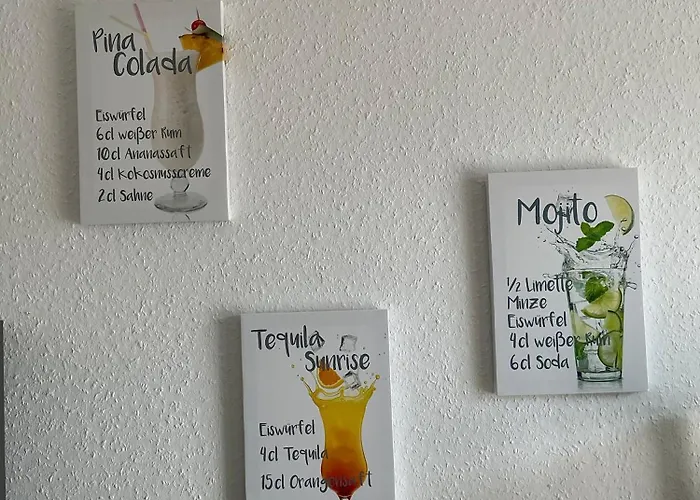 Pina
Colada
Eiswürfel
6cl weißer Rum
10cl Ananassaft
4cl Kokosnusscreme
2cl Sahne
Tequila
Sunrise
Eiswürfel
4cl Tequila
15cl Orangensaft
Mojito
1/2 Limette
Minze
Eiswürfel
4cl weißer Rum
6cl Soda